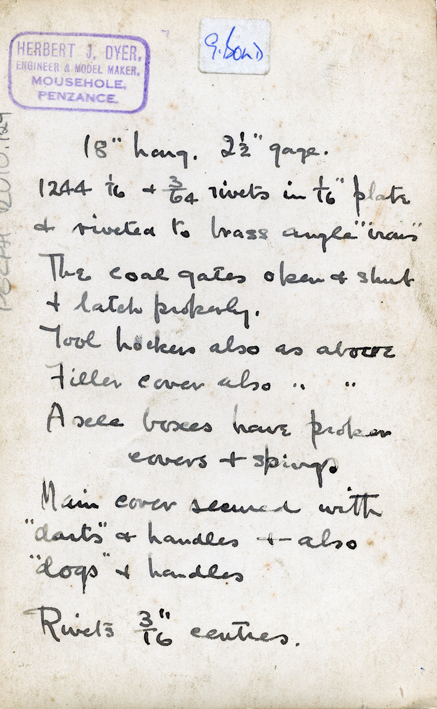 HERBERT J. DYER,
ENGINEER & MODEL MAKER,
MOUSEHOLE,
PENZANCE.
G. Bond
18" long. 2½" gage.
1244 1/16 & 3/64 rivets in 1/16" plate
& riveted to brass angle "irons"
The coal gates open & shut
& latch properly.
Tool lockers also as above
Filler cover also " "
Axle boxes have proper
covers & springs
Main cover secured with
"darts" & handles & also
"dogs" & handles
Rivets 3/16" centres.